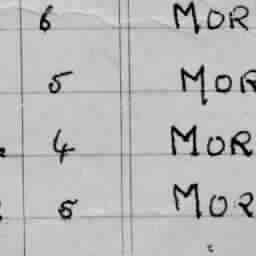 6 MOR
5 MOR
4 MOR
5 MOR